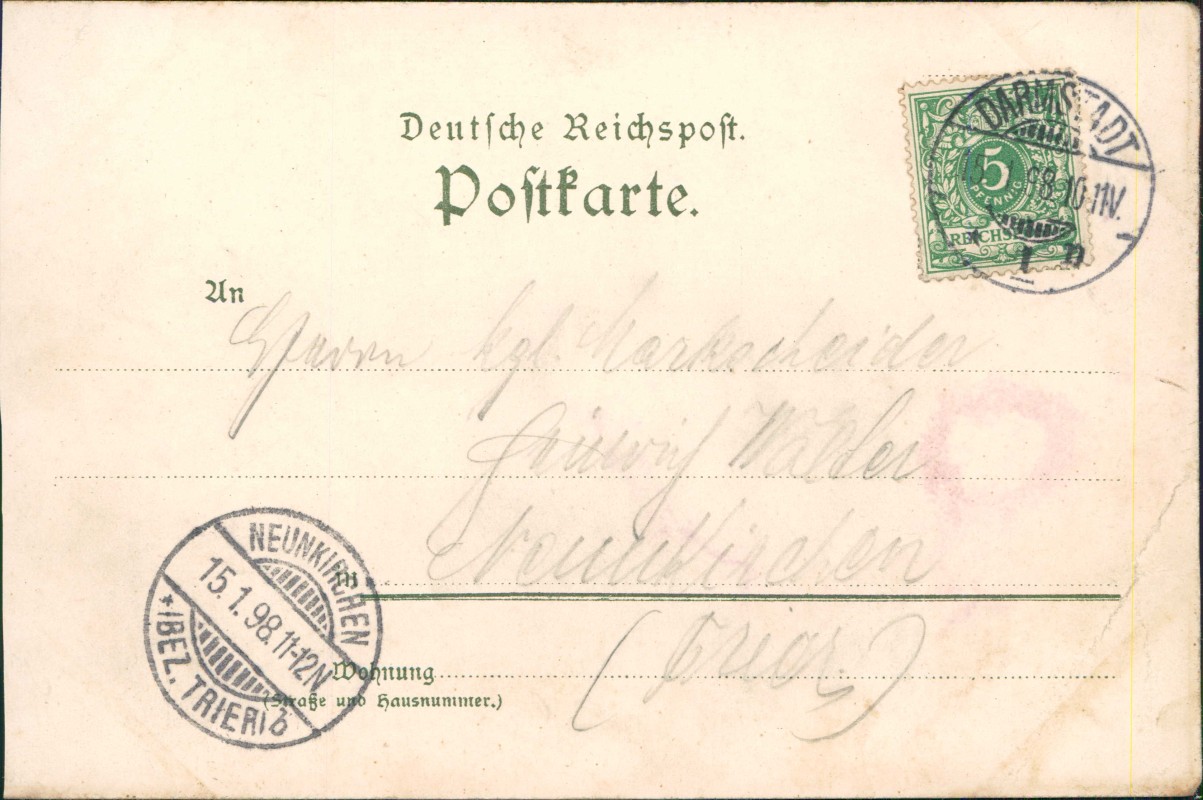 Deutsche Reichspost.
Postkarte.
5
PFENNIG
REICHSPOST
DARMSTADT
15. 1. 98. 10-11V.
* 1 n
An
Herrn kgl. Markscheider
Walter
in Neunkirchen
(Trier)
Wohnung
(Straße und Hausnummer.)
NEUNKIRCHEN
15. 1. 98. 11-12N
*(BEZ. TRIER) b